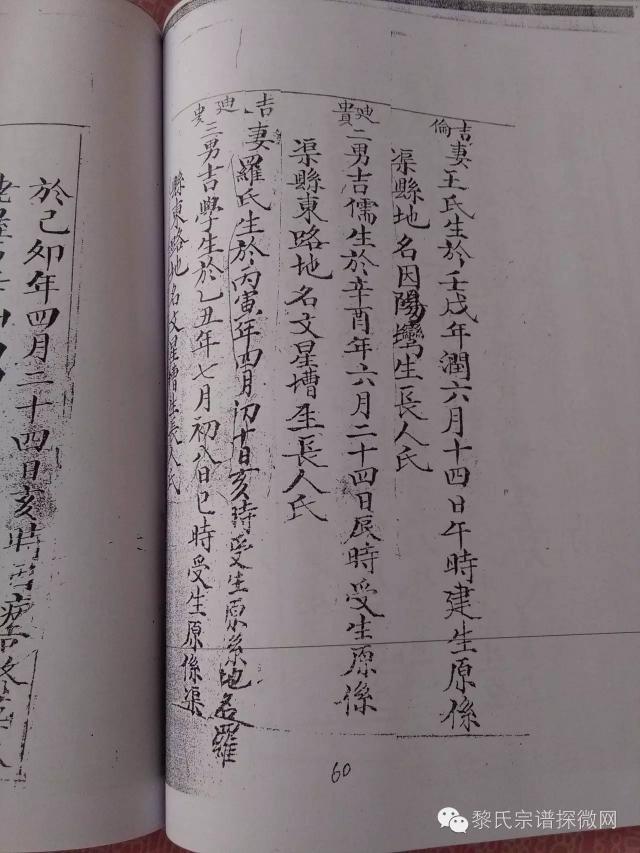 吉倫
妻王氏生於壬戌年潤六月十四日午時建生原係
渠縣地名因陽灣生長人氏
迪貴
二男吉儒生於辛酉年六月二十四日辰時受生原係
渠縣東路地名文星槽生長人氏
吉
妻羅氏生於丙寅年四月初十日亥時受生原係地名羅
迪貴
三男吉學生於乙丑年七月初八日巳時受生原係渠
縣東路地名文星槽生長人氏
於己卯年四月二十四日亥時
60
黎氏宗谱探微网